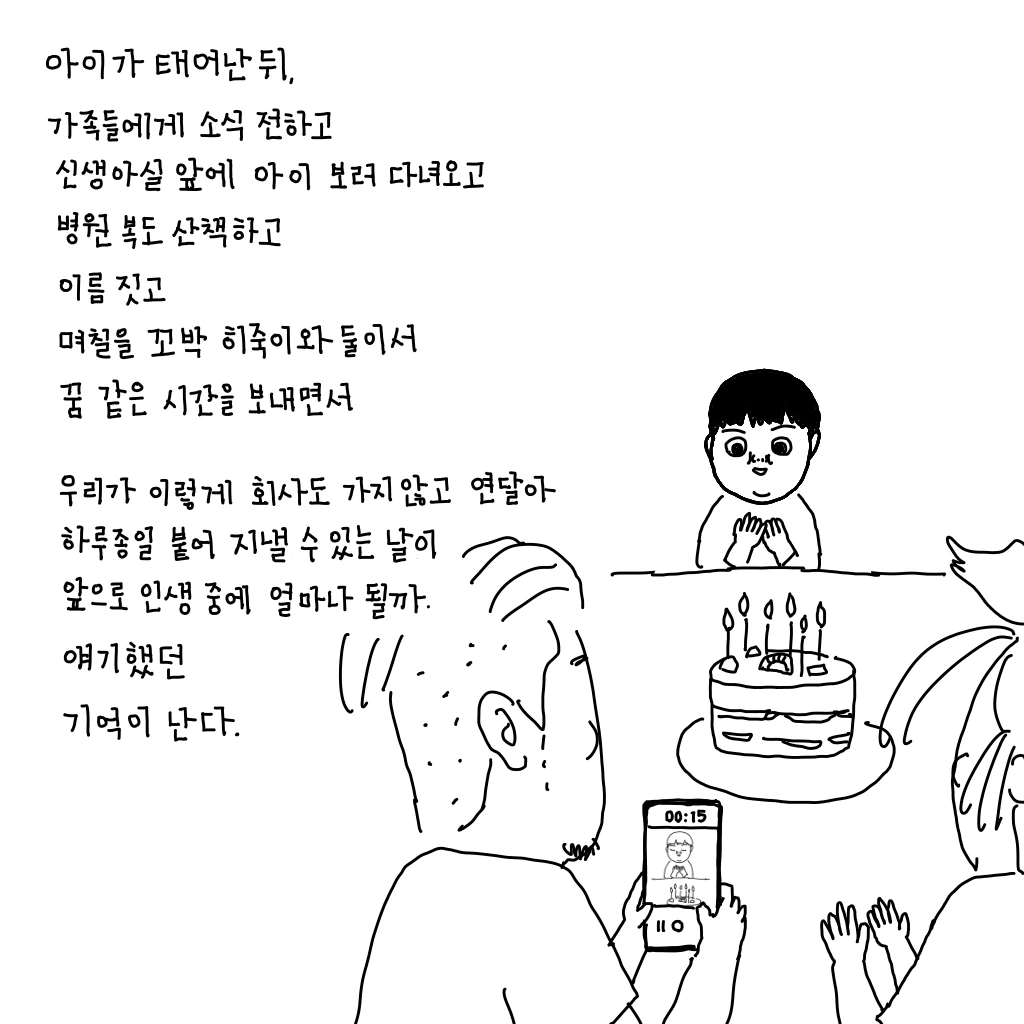 아이가 태어난 뒤,
가족들에게 소식 전하고
신생아실 앞에 아이 보러 다녀오고
병원 복도 산책하고
이름 짓고
며칠을 꼬박 히죽이와 둘이서
꿈 같은 시간을 보내면서
우리가 이렇게 회사도 가지 않고 연달아
하루종일 붙어 지낼 수 있는 날이
앞으로 인생 중에 얼마나 될까.
얘기했던
기억이 난다.
00:15